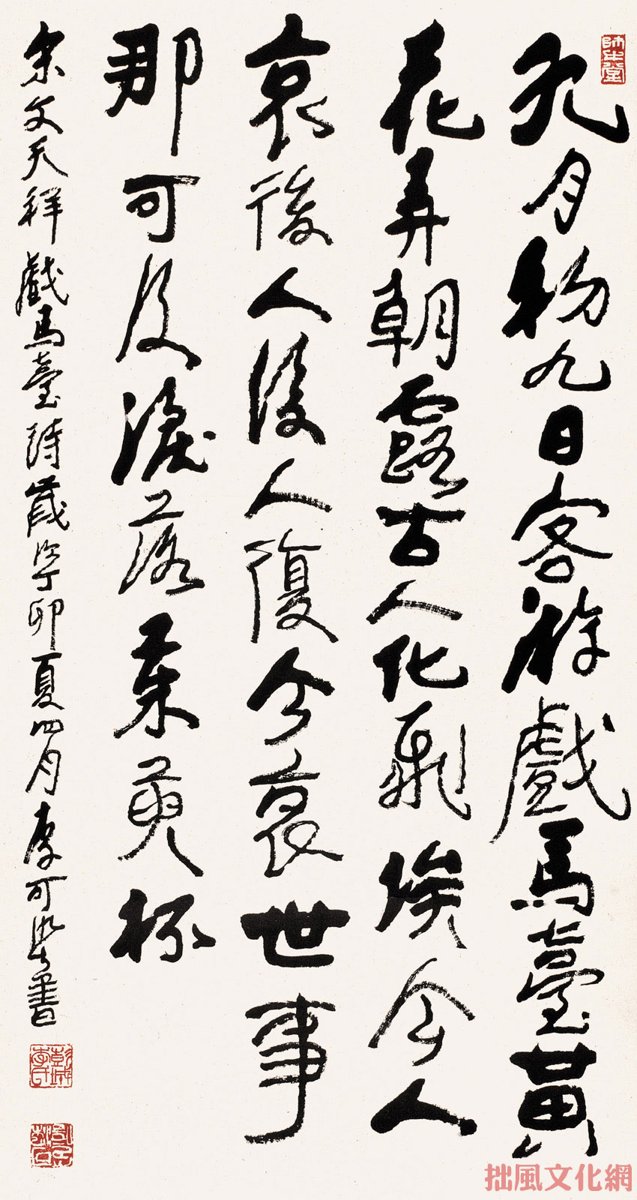 師牛堂
九月初九日客游戲馬臺黃
花弄朝露古人化飛埃今人
哀後人後人復今哀世事
那可及淚落茱萸杯
宋文天祥戲馬臺詩歲次丁卯夏四月李可染書
彭城李氏
拙風文化網